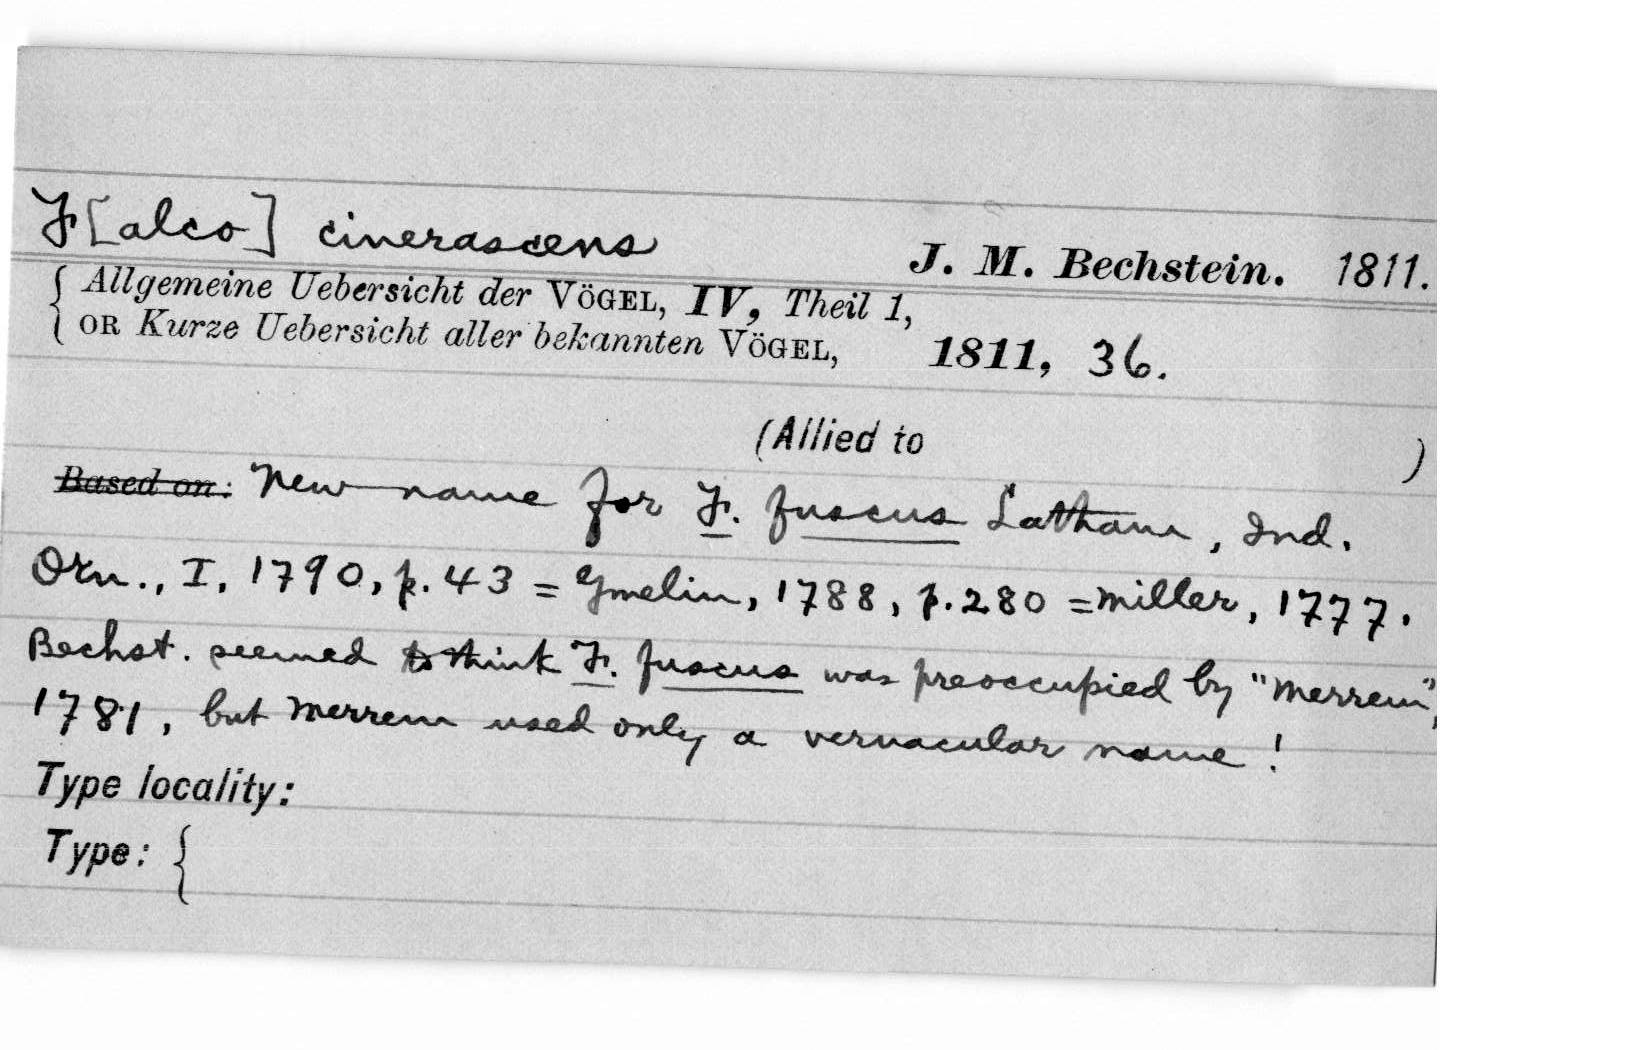 F[alco] cinerascens J. M. Bechstein. 1811.
{ Allgemeine Uebersicht der VÖGEL, IV, Theil 1,
OR Kurze Uebersicht aller bekannten VÖGEL, 1811, 36.
(Allied to )
Based on: New name for F. fuscus Latham, Ind.
Orn., I, 1790, p. 43 = Gmelin, 1788, p. 280 = Miller, 1777.
Bechst. seemed to think F. fuscus was preoccupied by "Merrem",
1781, but Merrem used only a vernacular name!
Type locality:
Type: {